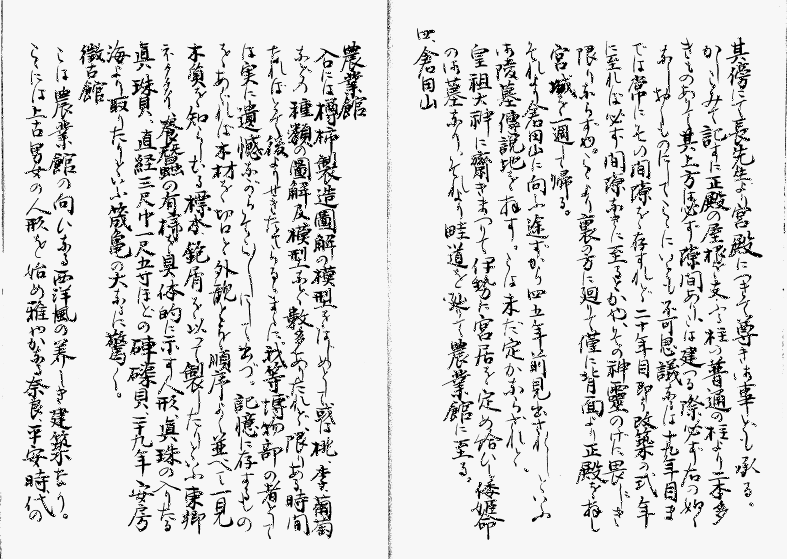 其傍にて長先生より宮殿につきて尊き御事ども承る。
かしこみて記すに正殿の屋根を支ふ柱の普通の柱より二本多
きものありて其上方は必ず隙間あり こは建つる際必ず右の如く
なしおくものにしてこゝにいとも不可思議なるは十九年目ま
では常にその間隙を存すれど二十年目即ち改築の式年
に至れば必ず間隙なきに至るとかや、その神霊のほど畏しき
限りならずや。こゝより裏の方に廻りて僅に背面より正殿を拝し
宮域を一週して帰る。
それより倉田山に向ふ途すがら四五年前見出されしといふ
御陵墓傳説地を拝す。こは未だ定かならざれど、
皇祖大神に齋きまつりて伊勢に宮居を定め給ひし倭姫命
の御墓なり、それより畦道を経て農業館に至る。
四、倉田山
農業館
合には樽柿製造圖解の模型をはじめとして或は桃李葡萄
などの種類の圖解及模型など数多あつたれど限りある時間
なればとて後よりせきたてらるゝまゝに、我等博物部の者とて
は実に遺憾ながらそこそこにして出づ。記憶に存するもの
をあぐれば木材を切口と外観とを順序よく並べて一見
木質を知らしむる標本、鉋屑を以つて製したりといふ東郷
ネクタイ、養蚕の有様を具体的に示す人形、真珠の入りたる
真珠貝、直経三尺巾一尺五寸ほどの硨磲貝、二十九年安房
海より取りたりといふ箴亀の大なるに驚く。
徴古館
こは農業館の向ひなる西洋風の美しき建築なり。
こゝには上古男女の人形を始め雅やかなる奈良平安時代の